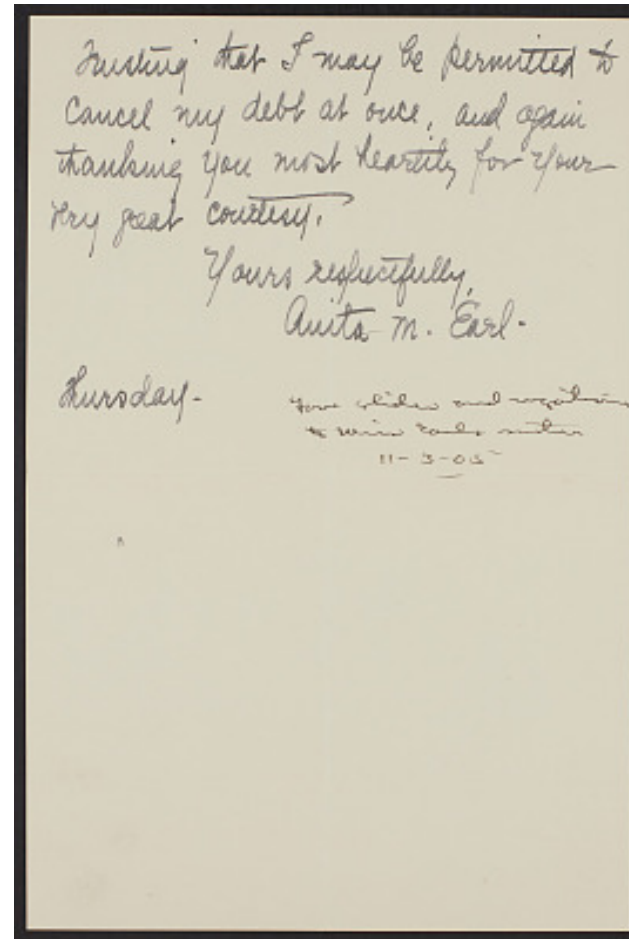 Trusting that I may be permitted to
cancel my debt at once, and again
thanking you most heartily for your
very great courtesy.
Yours respectfully,
Anita M. Earl.
Thursday.
slides and
to Miss Earl's mother
11-3-05